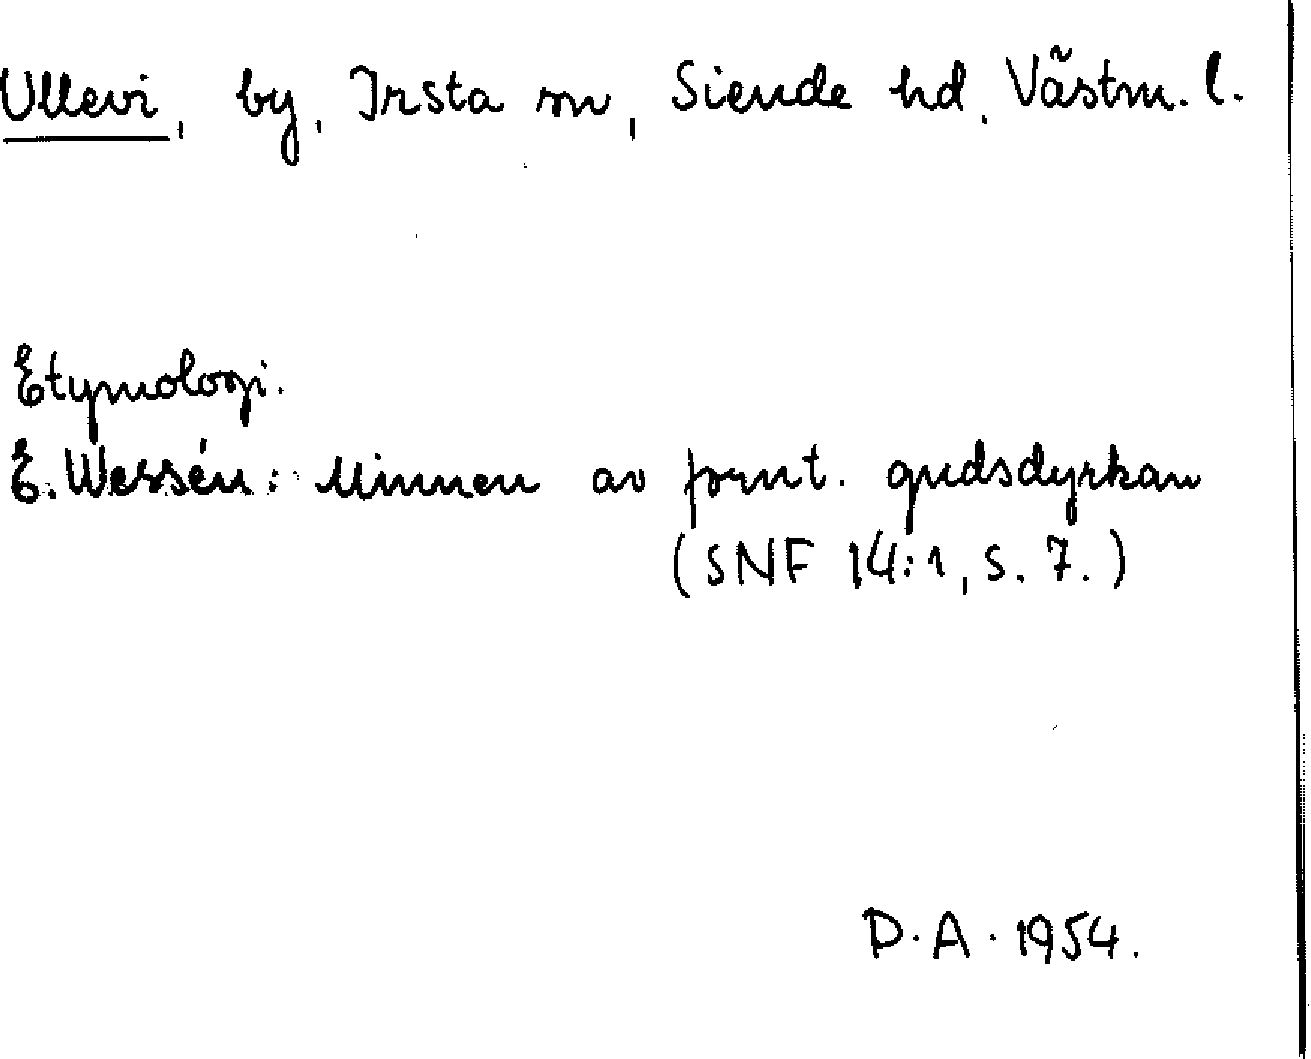 Ullevi, by, Irsta sn, Siende hd, Västm. l.
Etymologi.
E. Wessén: Minnen av fornt. gudsdyrkan
(SNF 14:1, s. 7.)
D. A. 1954.